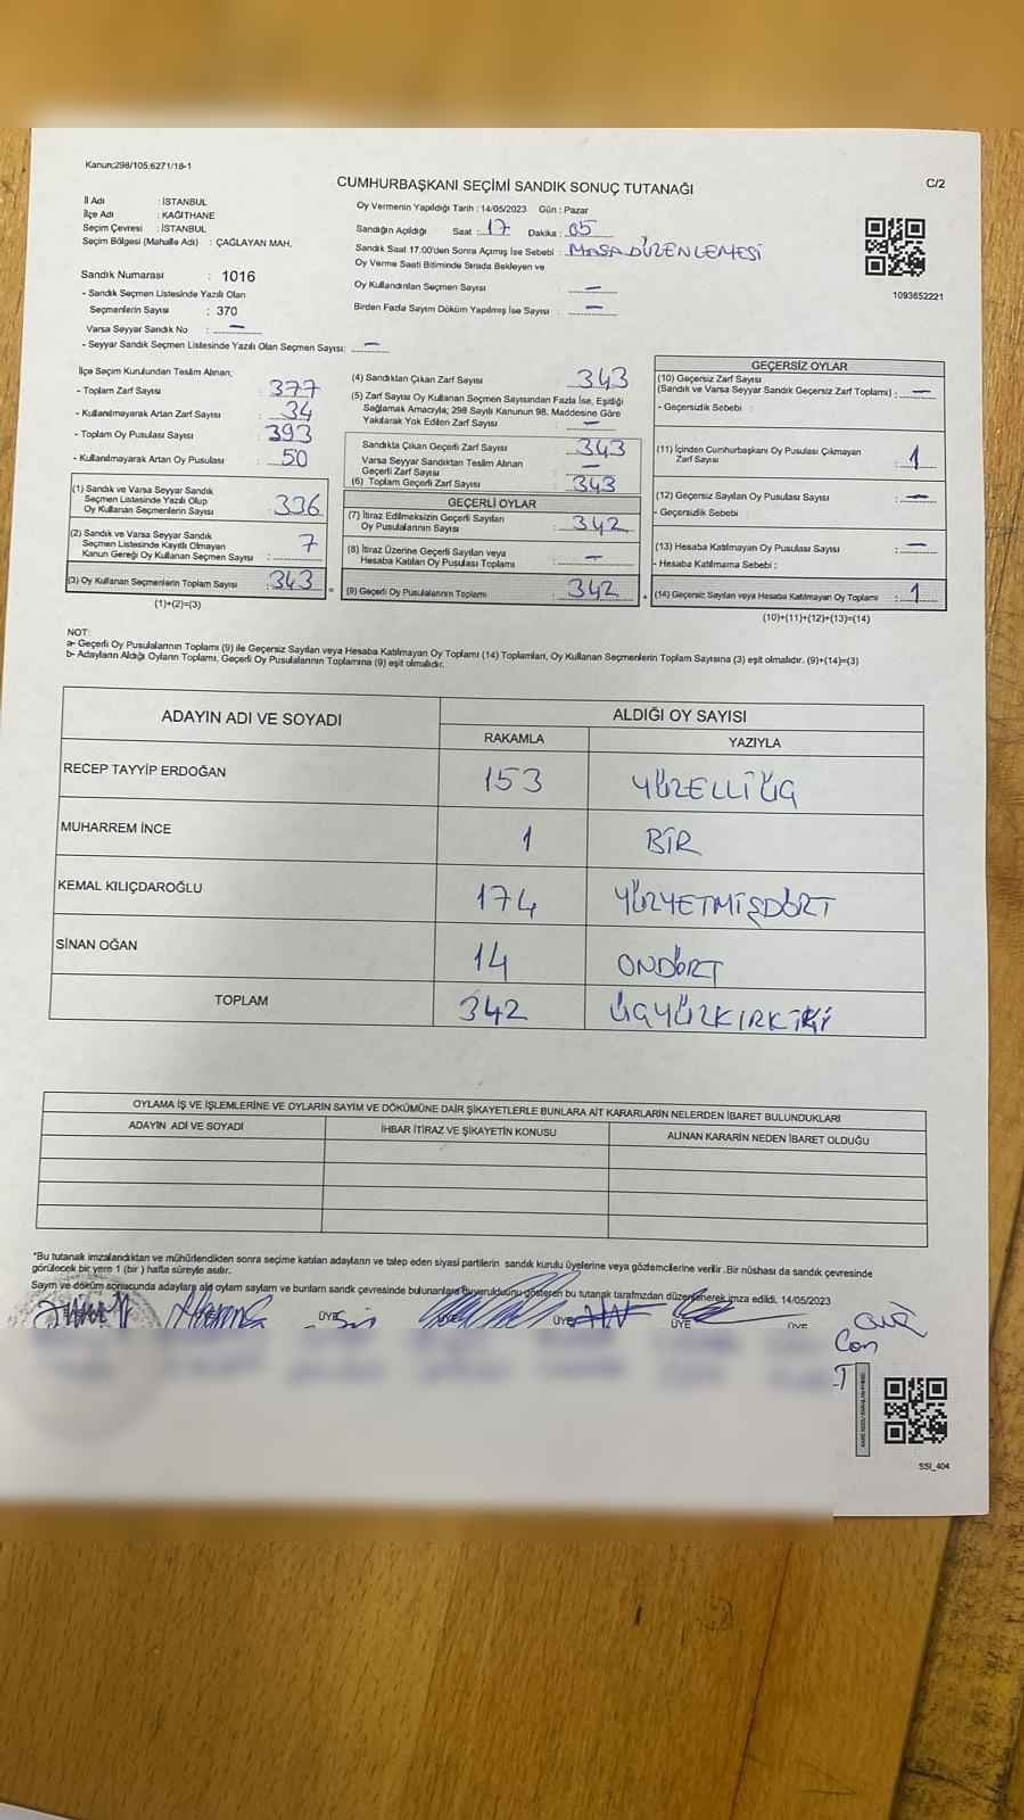 Kanun;298/105,6271/18-1
CUMHURBAŞKANI SEÇİMİ SANDIK SONUÇ TUTANAĞI
C/2
İl Adı : İSTANBUL
İlçe Adı : KAĞITHANE
Seçim Çevresi : İSTANBUL
Seçim Bölgesi (Mahalle Adı) : ÇAĞLAYAN MAH.
Oy Vermenin Yapıldığı Tarih : 14/05/2023 Gün : Pazar
Sandığın Açıldığı Saat : 17 Dakika : 05
Sandık Saat 17:00'den Sonra Açımış İse Sebebi : MASA DÜZENLEMESİ
Oy Verme Saati Bitiminde Sırada Bekleyen ve
Oy Kullandırılan Seçmen Sayısı : —
Birden Fazla Sayım Döküm Yapılmış İse Sayısı : —
1093652221
Sandık Numarası : 1016
- Sandık Seçmen Listesinde Yazılı Olan
Seçmenlerin Sayısı : 370
Varsa Seyyar Sandık No : —
- Seyyar Sandık Seçmen Listesinde Yazılı Olan Seçmen Sayısı: —
İlçe Seçim Kurulundan Teslim Alınan;
- Toplam Zarf Sayısı : 377
- Kullanılmayarak Artan Zarf Sayısı : 34
- Toplam Oy Pusulası Sayısı : 393
- Kullanılmayarak Artan Oy Pusulası : 50
(1) Sandık ve Varsa Seyyar Sandık
Seçmen Listesinde Yazılı Olup
Oy Kullanan Seçmenlerin Sayısı : 336
(2) Sandık ve Varsa Seyyar Sandık
Seçmen Listesinde Kayıtlı Olmayan
Kanun Gereği Oy Kullanan Seçmen Sayısı : 7
(3) Oy Kullanan Seçmenlerin Toplam Sayısı : 343
(1)+(2)=(3)
(4) Sandıktan Çıkan Zarf Sayısı : 343
(5) Zarf Sayısı Oy Kullanan Seçmen Sayısından Fazla İse, Eşitliği
Sağlamak Amacıyla; 298 Sayılı Kanunun 98. Maddesine Göre
Yakılarak Yok Edilen Zarf Sayısı : —
Sandıkta Çıkan Geçerli Zarf Sayısı : 343
Varsa Seyyar Sandıktan Teslim Alınan
Geçerli Zarf Sayısı : —
(6) Toplam Geçerli Zarf Sayısı : 343
GEÇERLİ OYLAR
(7) İtiraz Edilmeksizin Geçerli Sayılan
Oy Pusulalarının Sayısı : 342
(8) İtiraz Üzerine Geçerli Sayılan veya
Hesaba Katılan Oy Pusulası Toplamı : —
(9) Geçerli Oy Pusulalarının Toplamı : 342
GEÇERSİZ OYLAR
(10) Geçersiz Zarf Sayısı
(Sandık ve Varsa Seyyar Sandık Geçersiz Zarf Toplamı) : —
- Geçersizlik Sebebi :
(11) İçinden Cumhurbaşkanı Oy Pusulası Çıkmayan
Zarf Sayısı : 1
(12) Geçersiz Sayılan Oy Pusulası Sayısı : —
- Geçersizlik Sebebi :
(13) Hesaba Katılmayan Oy Pusulası Sayısı : —
- Hesaba Katılmama Sebebi :
(14) Geçersiz Sayılan veya Hesaba Katılmayan Oy Toplamı : 1
(10)+(11)+(12)+(13)=(14)
NOT:
a- Geçerli Oy Pusulalarının Toplamı (9) ile Geçersiz Sayılan veya Hesaba Katılmayan Oy Toplamı (14) Toplamları, Oy Kullanan Seçmenlerin Toplam Sayısına (3) eşit olmalıdır. (9)+(14)=(3)
b- Adayların Aldığı Oyların Toplamı, Geçerli Oy Pusulalarının Toplamına (9) eşit olmalıdır.
ADAYIN ADI VE SOYADI
ALDIĞI OY SAYISI
RAKAMLA YAZIYLA
RECEP TAYYİP ERDOĞAN 153 YÜZELLİÜÇ
MUHARREM İNCE 1 BİR
KEMAL KILIÇDAROĞLU 174 YÜZYETMİŞDÖRT
SİNAN OĞAN 14 ONDÖRT
TOPLAM 342 ÜÇYÜZKIRKİKİ
OYLAMA İŞ VE İŞLEMLERİNE VE OYLARIN SAYIM VE DÖKÜMÜNE DAİR ŞİKAYETLERLE BUNLARA AİT KARARLARIN NELERDEN İBARET BULUNDUKLARI
ADAYIN ADI VE SOYADI İHBAR İTİRAZ VE ŞİKAYETİN KONUSU ALINAN KARARIN NEDEN İBARET OLDUĞU
*Bu tutanak imzalandıktan ve mühürlendikten sonra seçime katılan adayların ve talep eden siyasi partilerin sandık kurulu üyelerine veya gözlemcilerine verilir .Bir nüshası da sandık çevresinde
görülecek bir yere 1 (bir ) hafta süreyle asılır.
Sayım ve döküm sonucunda adaylara ait oyların sayların ve bunların sandık çevresinde bulunanlara duyurulduğunu gösteren bu tutanak tarafımızdan düzenlenerek imza edildi. 14/05/2023
ÜYE ÜYE ÜYE ÜYE
SSI_404